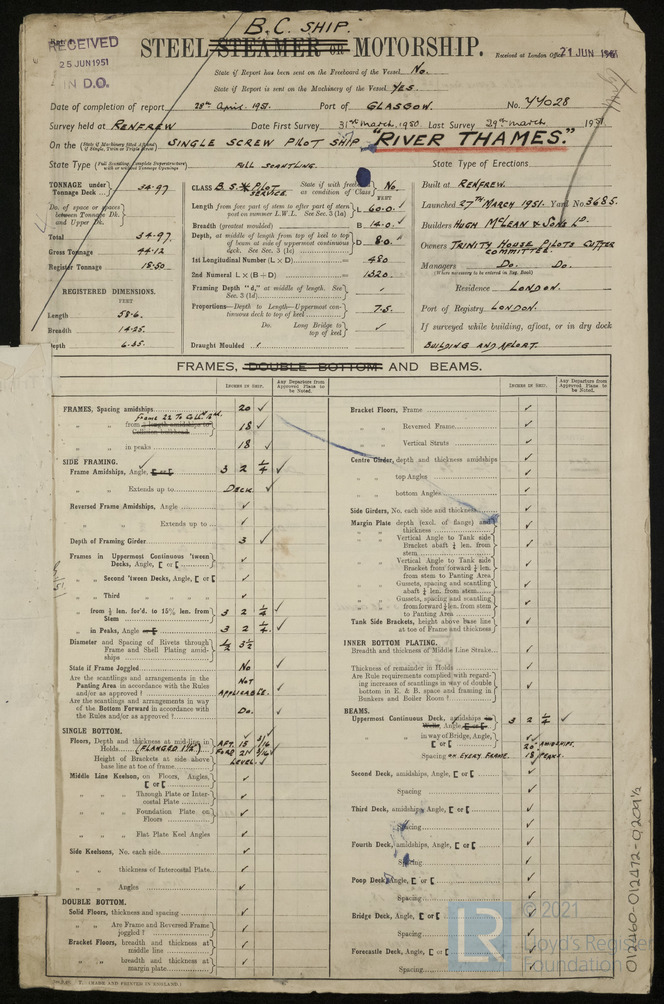 B.C. SHIP.
RECEIVED
25 JUN 1951
IN D.O.
STEEL STEAMER or MOTORSHIP.
Received at London Office 21 JUN 1951
State if Report has been sent on the Freeboard of the Vessel No.
State if Report is sent on the Machinery of the Vessel YES.
Date of completion of report 28th April. 1951. Port of GLASGOW. No. 44028
Survey held at RENFREW Date First Survey 31st March, 1950 Last Survey 29th March 1951
On the (State if Machinery fitted Aft and if Single, Twin or Triple Screw) SINGLE SCREW PILOT SHIP "RIVER THAMES."
State Type (Full Scantling, Complete Superstructure with or without Tonnage Openings) FULL SCANTLING. State Type of Erections
TONNAGE under Tonnage Deck 34.97
Do. of space or spaces between Tonnage Dk. and Upper Dk.
Total 34.97
Gross Tonnage 44.12
Register Tonnage 18.50
REGISTERED DIMENSIONS.
FEET
Length 58.6.
Breadth 14.25.
Depth 6.35.
CLASS B.S.* PILOT SERVICE. State if with freeboard as condition of Class No.
FEET
Length from fore part of stem to after part of stern post on summer L.W.L. See Sec. 3 (1a) L 60.0
Breadth (greatest moulded) B 14.0
Depth, at middle of length from top of keel to top of beam at side of uppermost continuous deck. See Sec. 3 (1c) D 8.0
1st Longitudinal Number (L × D) = 480
2nd Numeral L × (B + D) = 1320
Framing Depth "d," at middle of length. See Sec. 3 (1d)
Proportions—Depth to Length—Uppermost continuous deck to top of keel 7.5.
Do. Long Bridge to top of keel
Draught Moulded
Built at RENFREW.
Launched 27TH MARCH 1951. Yard No. 3685.
Builders HUGH McLEAN & SONS LD.
Owners TRINITY HOUSE PILOTS CUTTER COMMITTEE.
Managers Do. Do.
(Where necessary to be entered in Reg. Book)
Residence LONDON.
Port of Registry LONDON.
If surveyed while building, afloat, or in dry dock
BUILDING AND AFLOAT.
FRAMES, DOUBLE BOTTOM AND BEAMS.
INCHES IN SHIP. Any Departure from Approved Plans to be Noted.
FRAMES, Spacing amidships 20 ✓
Frame 22 To Collsn Bhd.
" " from ⅕ length amidships to Collision bulkhead 18 ✓
" " in peaks 18 ✓
SIDE FRAMING.
Frame Amidships, Angle, [ or [ 3 2 ¼ ✓
" " Extends up to DECK ✓
Reversed Frame Amidships, Angle ✓
" " Extends up to ✓
Depth of Framing Girder 3 ✓
Frames in Uppermost Continuous 'tween Decks, Angle, [ or [ ✓
" Second 'tween Decks, Angle, [ or [ ✓
" Third " " " ✓
" from ⅕ len. for'd. to 15% len. from Stem 3 2 ¼ ✓
" in Peaks, Angle or [ 3 2 ¼ ✓
Diameter and Spacing of Rivets through Frame and Shell Plating amidships ½ 3½ ✓
State if Frame Joggled No ✓
Are the scantlings and arrangements in the Panting Area in accordance with the Rules and/or as approved? NOT APPLICABLE. ✓
Are the scantlings and arrangements in way of the Bottom Forward in accordance with the Rules and/or as approved? Do. ✓
SINGLE BOTTOM.
Floors, Depth and thickness at mid-line in Holds (FLANGED 1½") AFT. 15 3/16 FORD 21 3/16
Height of Brackets at side above base line at toe of frame LEVEL. ✓
Middle Line Keelson, on Floors, Angles, [ or [ ✓
" " Through Plate or Intercostal Plate ✓
" " Foundation Plate on Floors ✓
" " Flat Plate Keel Angles ✓
Side Keelsons, No. each side ✓
" " thickness of Intercostal Plate ✓
" " Angles ✓
DOUBLE BOTTOM.
Solid Floors, thickness and spacing ✓
" " Are Frame and Reversed Frame joggled? ✓
Bracket Floors, breadth and thickness at middle line ✓
" " breadth and thickness at margin plate ✓
INCHES IN SHIP. Any Departure from Approved Plans to be Noted.
Bracket Floors, Frame ✓
" " Reversed Frame ✓
" " Vertical Struts ✓
Centre Girder, depth and thickness amidships ✓
" " top Angles ✓
" " bottom Angles ✓
Side Girders, No. each side and thickness ✓
Margin Plate depth (excl. of flange) and thickness ✓
" " Vertical Angle to Tank side Bracket abaft ¼ len. from stem ✓
" " Vertical Angle to Tank side Bracket from forward ¼ len. from stem to Panting Area ✓
" " Gussets, spacing and scantling abaft ¼ len. from stem ✓
" " Gussets, spacing and scantling from forward ¼ len. from stem to Panting Area ✓
Tank Side Brackets, height above base line at toe of Frame and thickness ✓
INNER BOTTOM PLATING.
Breadth and thickness of Middle Line Strake ✓
Thickness of remainder in Holds ✓
Are Rule requirements complied with regarding increases of scantlings in way of double bottom in E. & B. space and framing in Bunkers and Boiler Room? ✓
BEAMS.
Uppermost Continuous Deck, amidships in Wells, Angle, [ or [ 3 2 ¼ ✓
" " in way of Bridge, Angle, [ or [ ✓
Spacing ON EVERY FRAME. 20" AMIDSHIPS. 18" PEAKS.
Second Deck, amidships, Angle, [ or [ ✓
Spacing ✓
Third Deck, amidships, Angle, [ or [ ✓
Spacing ✓
Fourth Deck, amidships, Angle, [ or [ ✓
Spacing ✓
Poop Deck, Angle, [ or [ ✓
Spacing ✓
Bridge Deck, Angle, [ or [ ✓
Spacing ✓
Forecastle Deck, Angle, [ or [ ✓
Spacing ✓
(MADE AND PRINTED IN ENGLAND.)
012460-012472-0209¼
LR
© 2021
Lloyd's Register
Foundation